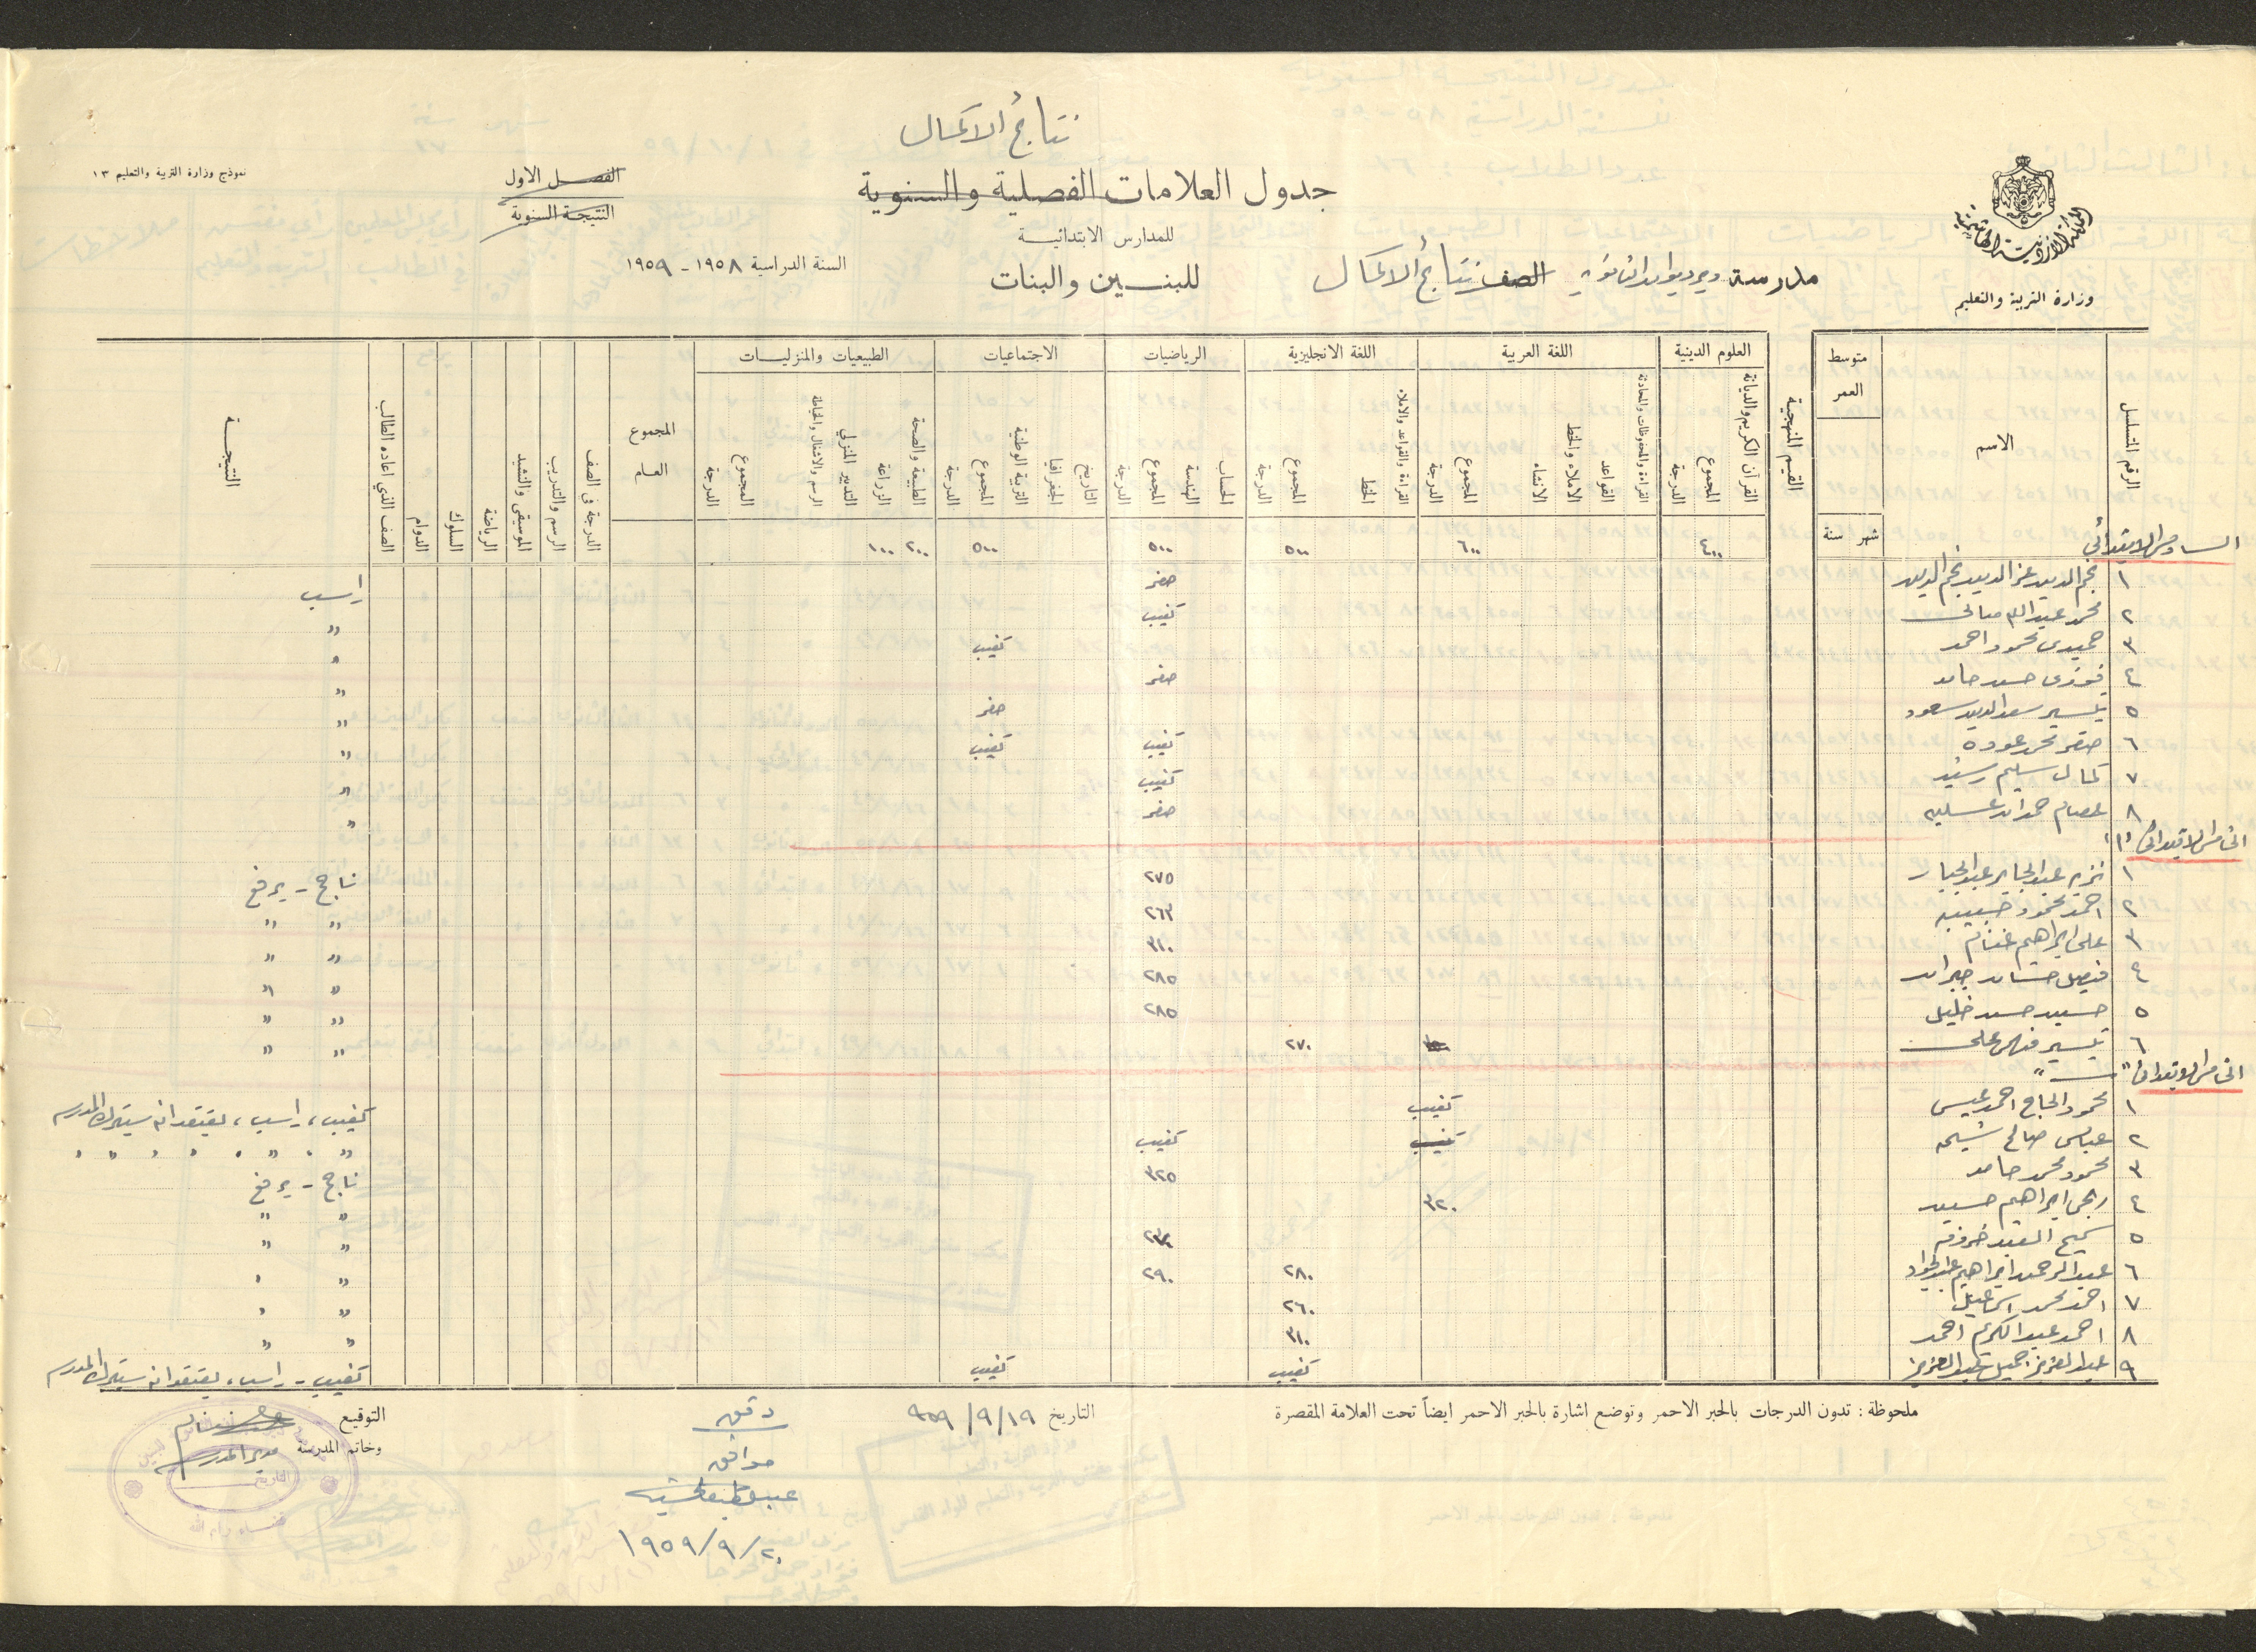 نتائج الاكمال
نموذج وزارة التربية والتعليم ١٣
الفصل الاول
النتيجة السنوية
جدول العلامات الفصلية والسنوية
للمدارس الابتدائية
السنة الدراسية ١٩٥٨ - ١٩٥٩
للبنين والبنات
المملكة الاردنية الهاشمية
وزارة التربية والتعليم
مدرسة دير ديوان الثانوية الصف نتائج الاكمال
الرقم المتسلسل
الاسم
متوسط العمر
شهر سنة
القيم المنهجية
العلوم الدينية
القرآن الكريم والديانة
المجموع
الدرجة
اللغة العربية
القراءة والمحفوظات والمحادثة
القواعد
الاملاء والخط
الانشاء
المجموع
الدرجة
اللغة الانجليزية
القراءة والقواعد والاملاء
الخط
المجموع
الدرجة
الرياضيات
الحساب
الهندسة
المجموع
الدرجة
الاجتماعيات
التاريخ
الجغرافيا
التربية الوطنية
المجموع
الدرجة
الطبيعيات والمنزليات
الطبيعة والصحة
الزراعة
التدبير المنزلي
الرسم والاشغال والخياطة
المجموع
الدرجة
المجموع العام
الدرجة في الصف
الرسم والتدريب
الموسيقى والنشيد
الرياضة
السلوك
الدوام
الصف الذي اعاده الطالب
النتيجة
السادس الابتدائي ٤٠٠ ٦٠٠ ٥٠٠ ٥٠٠ ٥٠٠ ٢٠٠ ١٠٠
١ نجم الدين عز الدين نجم الدين صفر راسب
٢ محمد عبدالله صالح تغيب "
٣ حميدي محمود احمد تغيب "
٤ فوزي حسن حامد صفر "
٥ تيسير سعد الدين سعود صفر "
٦ صقر محمد عودة تغيب تغيب "
٧ كمال سليم رشيد تغيب "
٨ عصام حمدان صفر "
الخامس الابتدائي "أ"
١ عبد الجابر عبد الجبار ٢٧٥ ناجح - يرفع
٢ احمد محمود ٢٦٣ " "
٣ علي ابراهيم غنام ٣١٠ " "
٤ فيصل جبران ٢٨٥ " "
٥ حسين حسن خليل ٢٨٥ " "
٦ تيسير علي ٢٧٠ " "
الخامس الابتدائي "ب"
١ محمود الحاج احمد عيسى تغيب تغيب، راسب، يعتقد انه سيترك المدرسة
٢ عباس صالح شيحه تغيب تغيب " " " " " "
٣ محمود محمد حامد ٣٢٥ ناجح - يرفع
٤ ربحي ابراهيم حسين ٣٢٠ " "
٥ سميح العبد " "
٦ عبد الرحمن ابراهيم عبد الجواد ٢٨٠ ٢٩٠ " "
٧ احمد محمد اسماعيل ٢٦٠ " "
٨ احمد عبد الكريم احمد ٣١٠ " "
٩ عبد العزيز جميل عبد العزيز تغيب تغيب تغيب - راسب، يعتقد انه سيترك المدرسة
ملحوظة : تدون الدرجات بالحبر الاحمر وتوضع اشارة بالحبر الاحمر ايضاً تحت العلامة المقصرة
التاريخ ١٩/٩/٩٥٩
دقق
موافق
٢٠/٩/١٩٥٩
التوقيع
وخاتم المدرسة
مدير المدرسة
التاريخ